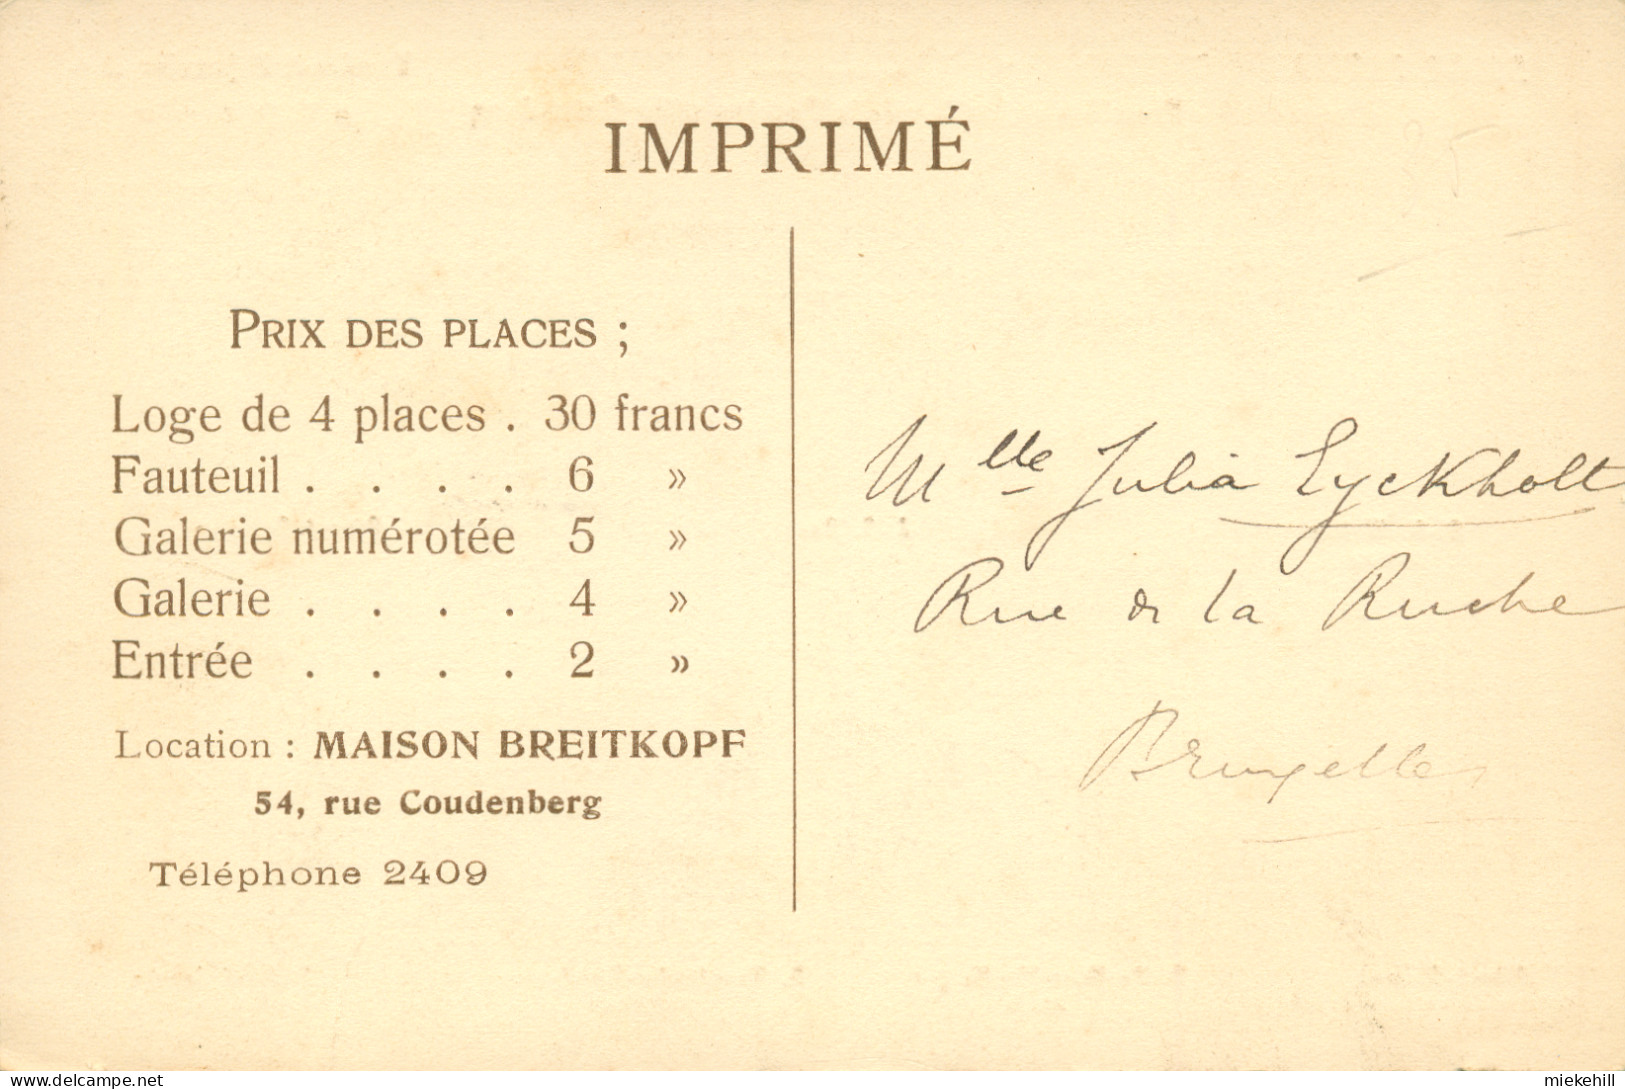 IMPRIMÉ
PRIX DES PLACES ;
Loge de 4 places . 30 francs
Fauteuil . . . . 6 »
Galerie numérotée 5 »
Galerie . . . . 4 »
Entrée . . . . 2 »
Location : MAISON BREITKOPF
54, rue Coudenberg
Téléphone 2409
Mlle Julia Eyckholt
Rue de la Ruche
Bruxelles
delcampe.net
miekehill